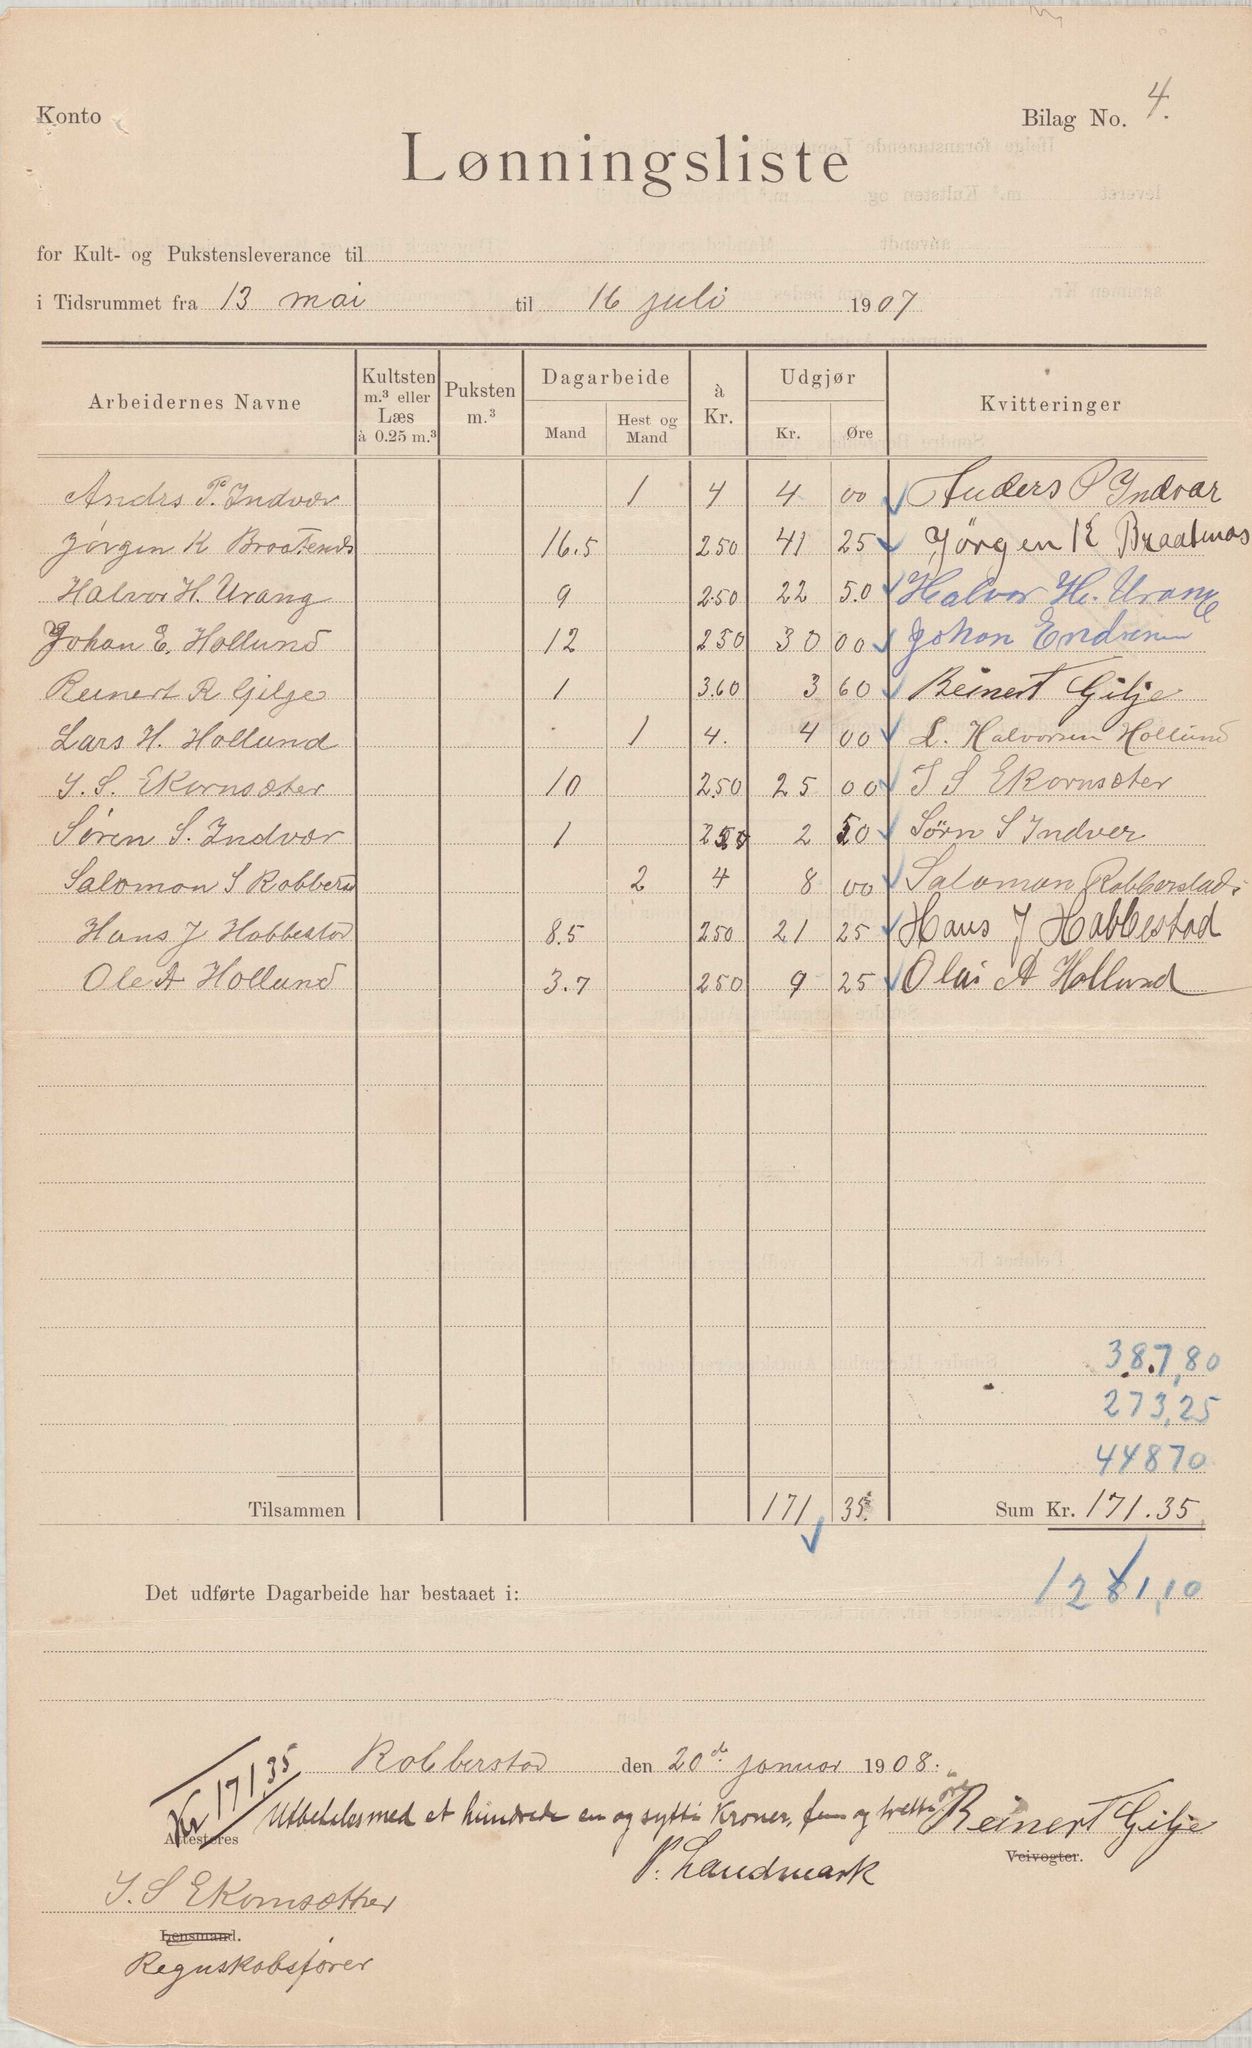 Konto
Bilag No. 4.
Lønningsliste
for Kult- og Pukstensleverance til
i Tidsrummet fra 13 mai til 16 juli 1907
Arbeidernes Navne | Kultsten m.³ eller Læs à 0.25 m.³ | Puksten m.³ | Dagarbeide Mand | Hest og Mand | à Kr. | Udgjør Kr. | Øre | Kvitteringer
Andrs P. Indvær 1 4 4 00 Anders P Indvær
Jørgen K Braatenæs 16.5 250 41 25 Jørgen K Braatenæs
Halvor H. Urang 9 2.50 22 5.0 Halvor H. Urang
Johan E. Hollund 12 250 30 00 Johan Endresen
Reinert R Gilge 1 3.60 3 60 Reinert Gilje
Lars H. Hollund 1 4. 4 00 L. Halvorsen Hollund
I. S. Ekornsæter 10 2.50 25 00 I S Ekornsæter
Søren S. Indvær 1 250 2 50 Sørn S Indver
Salomon S Robberst 2 4 8 00 Salamon Robberstad
Hans J Habbestad 8.5 250 21 25 Hans J Habbestad
Ole A Hollund 3.7 250 9 25 Olai A Hollund
387,80
273,25
44870
Tilsammen 171 35. Sum Kr. 171.35
1281,10
Det udførte Dagarbeide har bestaaet i:
Robberstad den 20de januar 1908.
Kr 171,35
Utbetales med et hundrede en og sytti Kroner, fem og tretti øre
Reinert Gilje
Attesteres
P. Landmark
Veivogter.
I. S Ekornsæther
Lensmand.
Regnskabsfører